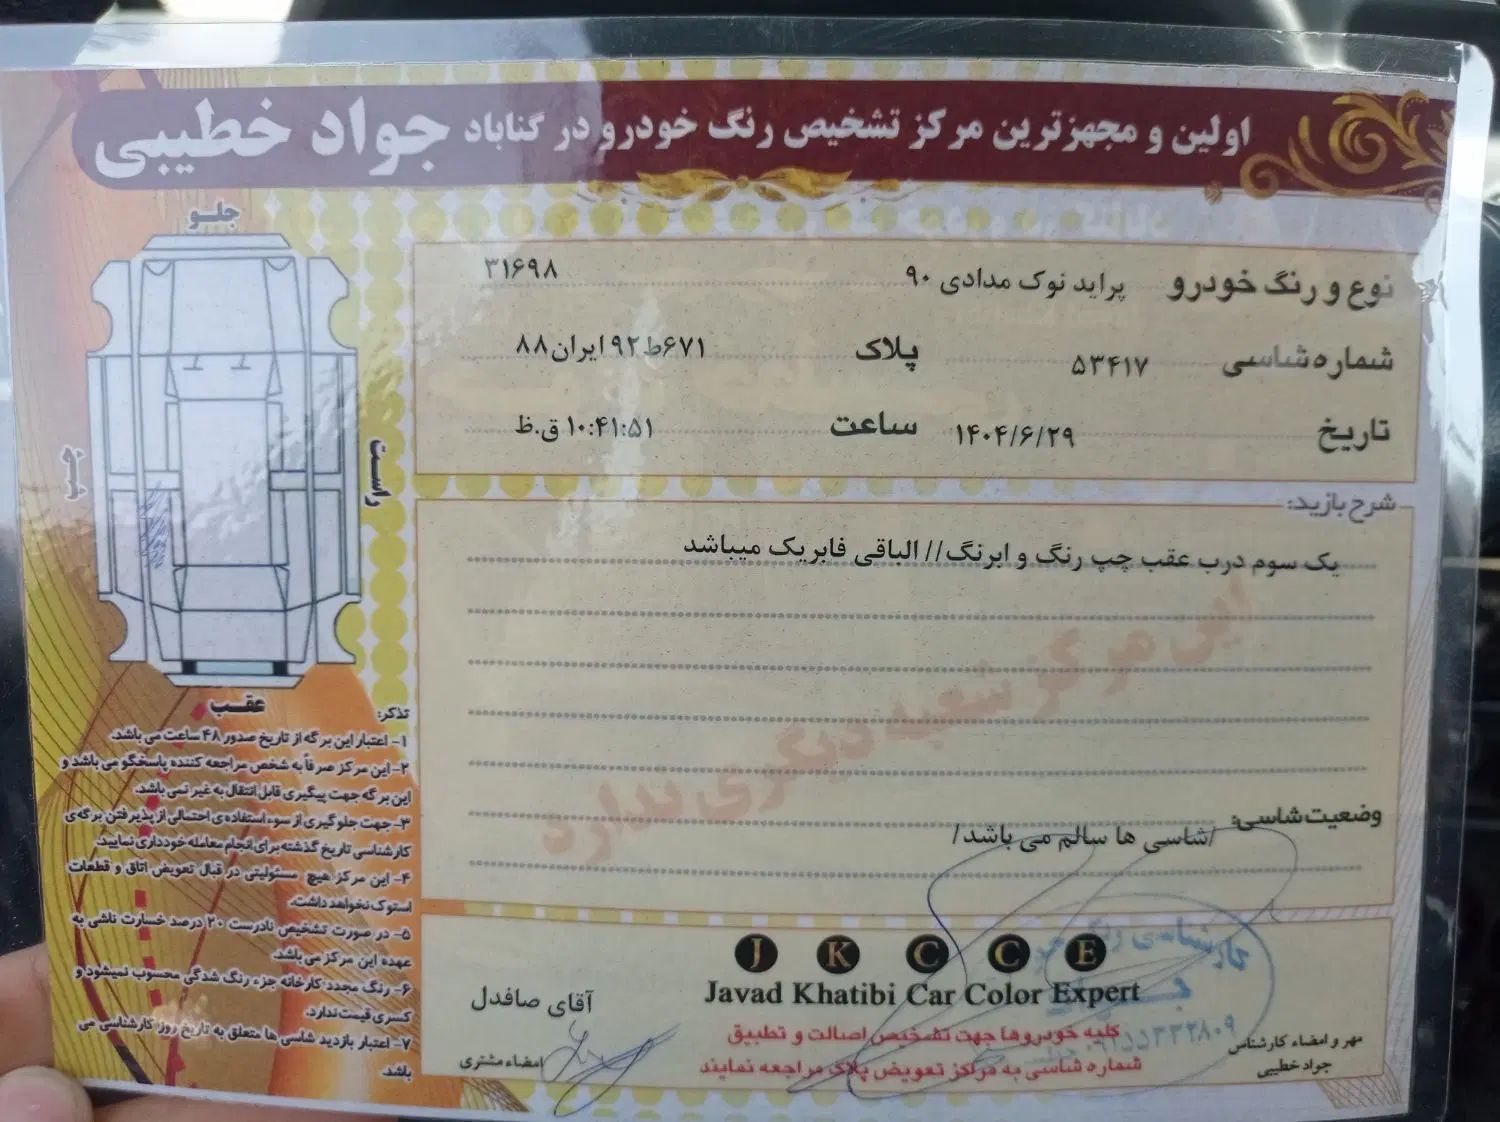 اولین و مجهزترین مرکز تشخیص رنگ خودرو در گناباد جواد خطیبی
نوع و رنگ خودرو پراید نوک مدادی ۹۰ ۳۱۶۹۸
شماره شاسی ۵۳۴۱۷ پلاک ۶۷۱ط۹۲ ایران۸۸
تاریخ ۱۴۰۴/۶/۲۹ ساعت ۱۰:۴۱:۵۱ ق.ظ
شرح بازید:
یک سوم درب عقب چپ رنگ و ابرنگ// الباقی فابریک میباشد
این مرکز شعبه دیگری ندارد
وضعیت شاسی:
/شاسی ها سالم می باشد/
جلو
راست
عقب
تذکر:
۱- اعتبار این برگه از تاریخ صدور ۴۸ ساعت می باشد.
۲- این مرکز صرفاً به شخص مراجعه کننده پاسخگو می باشد و
این برگه جهت پیگیری قابل انتقال به غیر نمی باشد.
۳- جهت جلوگیری از سوء استفاده‌ی احتمالی از پذیرفتن برگه‌ی
کارشناسی تاریخ گذشته برای انجام معامله خودداری نمایید.
۴- این مرکز هیچ مسئولیتی در قبال تعویض اتاق و قطعات
استوک نخواهد داشت.
۵- در صورت تشخیص نادرست ۲۰ درصد خسارت ناشی به
عهده این مرکز می باشد.
۶- رنگ مجدد کارخانه جزء رنگ شدگی محسوب نمیشود و
کسری قیمت ندارد.
۷- اعتبار بازدید شاسی ها متعلق به تاریخ روز کارشناسی می
باشد.
J K C C E
Javad Khatibi Car Color Expert
کلیه خودروها جهت تشخیص اصالت و تطبیق
شماره شاسی به مراکز تعویض پلاک مراجعه نمایند
آقای صافدل
امضاء مشتری
مهر و امضاء کارشناس
جواد خطیبی